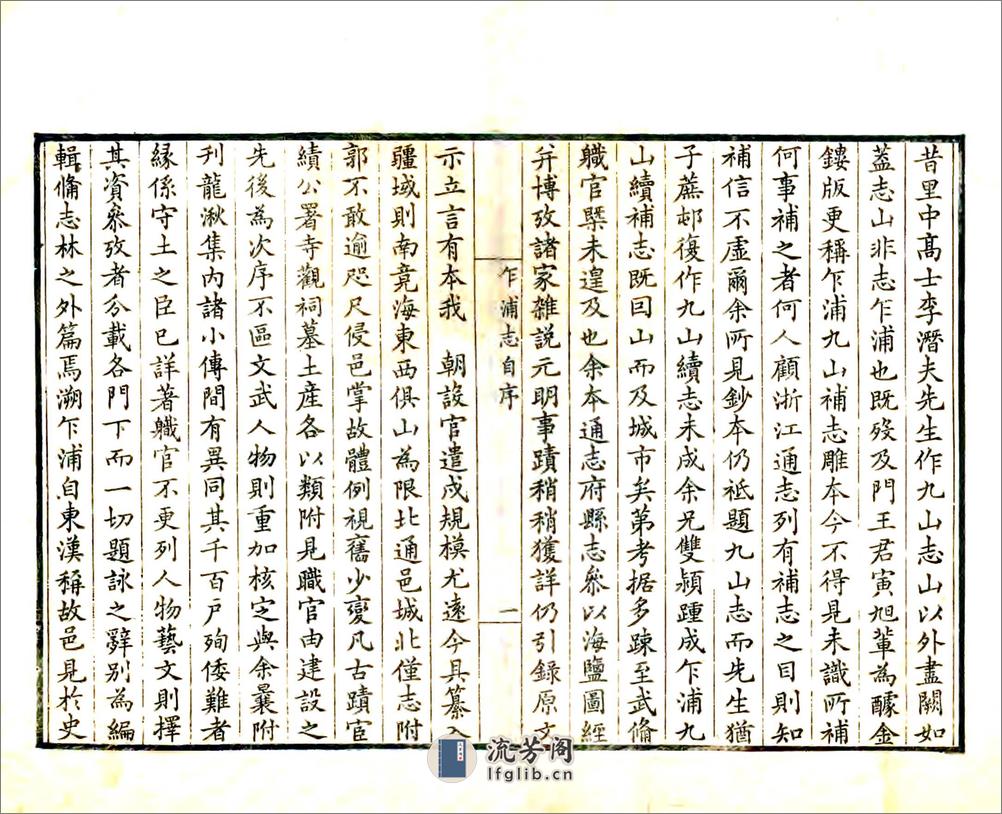 昔里中髙士李潛夫先生作九山志山以外盡闕如
葢志山非志乍浦也既歿及門王君寅旭輩為醵金
鏤版更稱乍浦九山補志雕本今不得見未識所補
何事補之者何人顧浙江通志列有補志之目則知
補信不虛爾余所見鈔本仍祗題九山志而先生猶
子蔗邨復作九山續志未成余兄雙潁踵成乍浦九
山續補志既囙山而及城市矣第考据多踈至武俻
軄官槩未遑及也余本通志府縣志叅以海鹽圖經
并博攷諸家雑説元明事蹟稍稍獲詳仍引録原文
乍浦志自序
一
示立言有本我 朝設官遣戍規模尤遠今具纂入
疆域則南竟海東西俱山為限北通邑城北僅志附
郭不敢逾咫尺侵邑掌故體例視舊少變凡古蹟官
績公署寺觀祠墓土産各以類附見職官由建設之
先後為次序不區文武人物則重加核定與余曩附
刋龍湫集内諸小傳間有異同其千百戸殉倭難者
縁係守土之臣已詳著軄官不更列人物藝文則擇
其資叅攷者分載各門下而一切題詠之辭别為編
輯俻志林之外篇焉溯乍浦自東漢稱故邑見於史
流芳阁
lfglib.cn